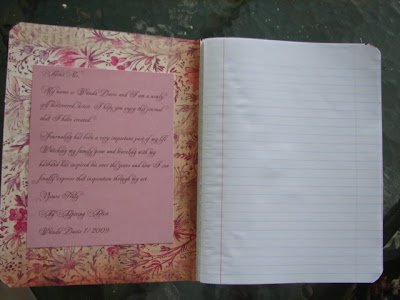 About Me
My name is Wanda Davis and I am a newly
self discovered artist. I hope you enjoy this journal
that I have created.
Journaling has been a very important part of my life.
Watching my family grow and traveling with my
husband has inspired me over the years and now I am
finally express that inspiration through my art.
Yours Truly
Wanda Davis 7/2009